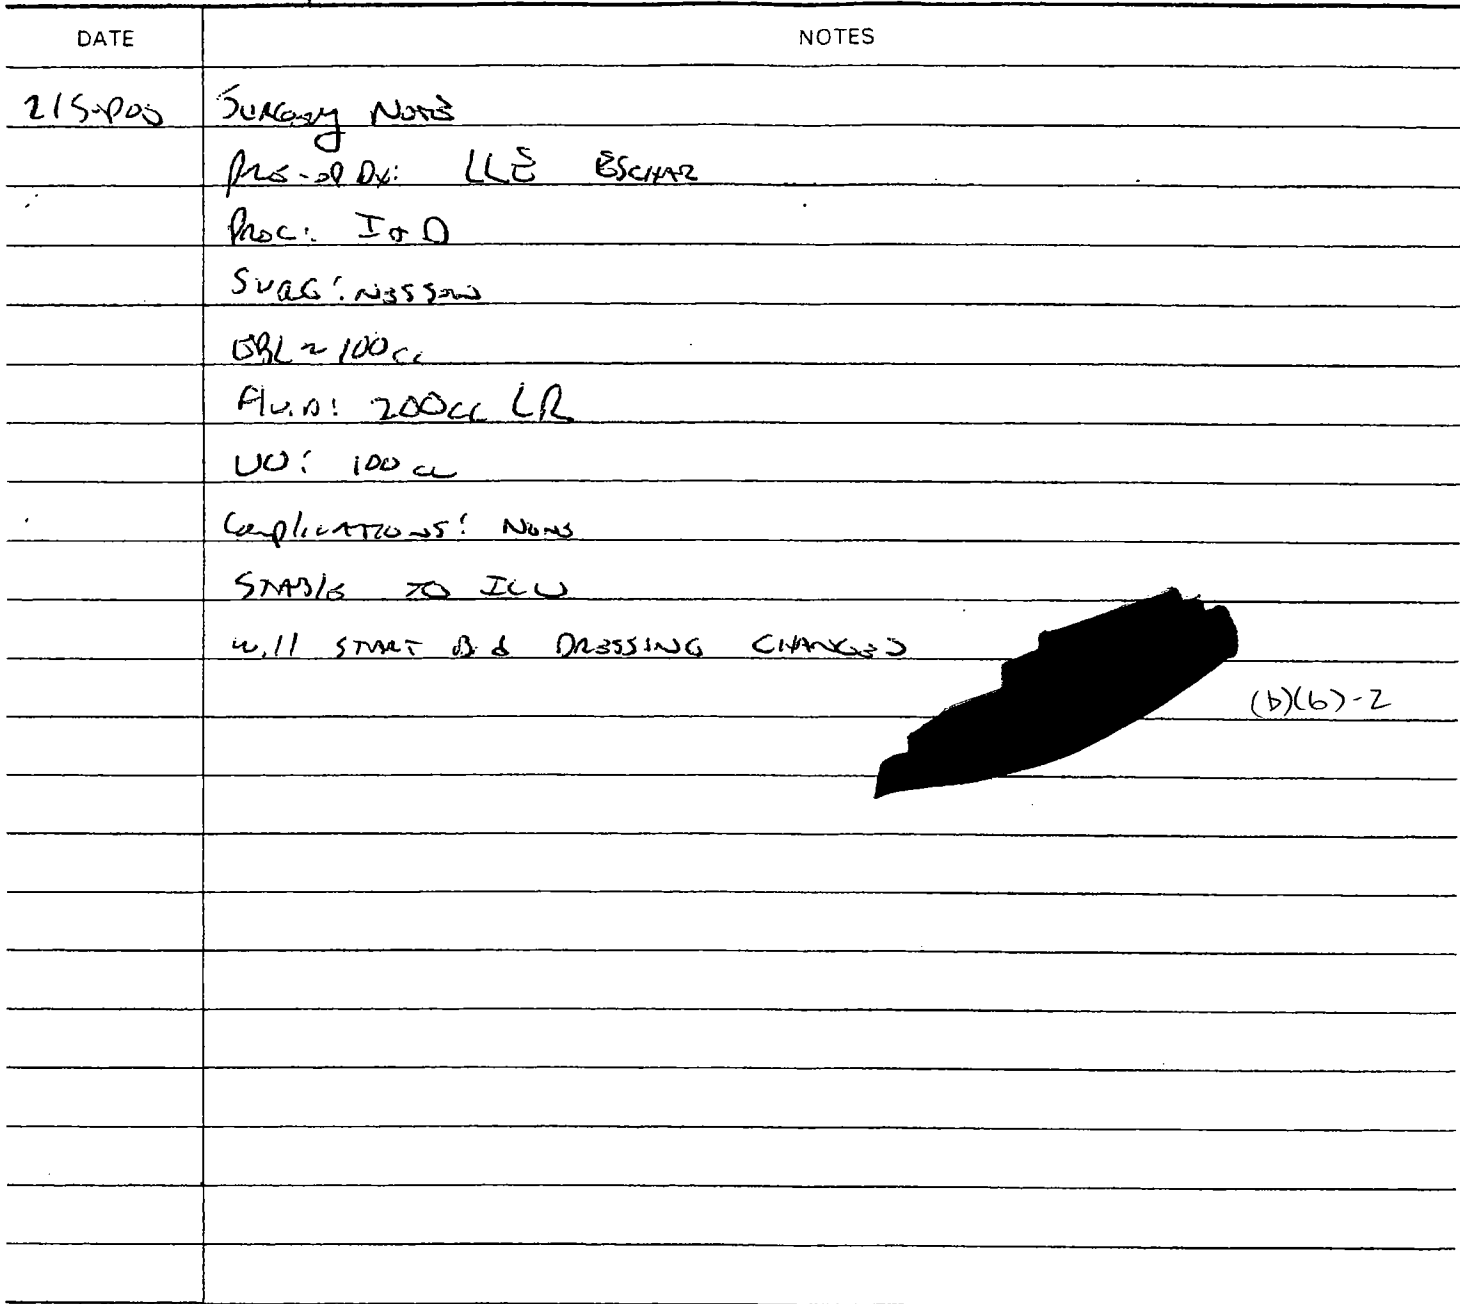 DATE NOTES
21 Sep 03 Surgery Note
Pre-op Dx: LLE ESCHAR
Proc: I & D
Surg:
EBL ~ 100cc
Fluid: 200cc LR
UO: 100 cc
Complications: None
STABLE TO ICU
Will START Bid DRESSING CHANGES
(b)(6)-2